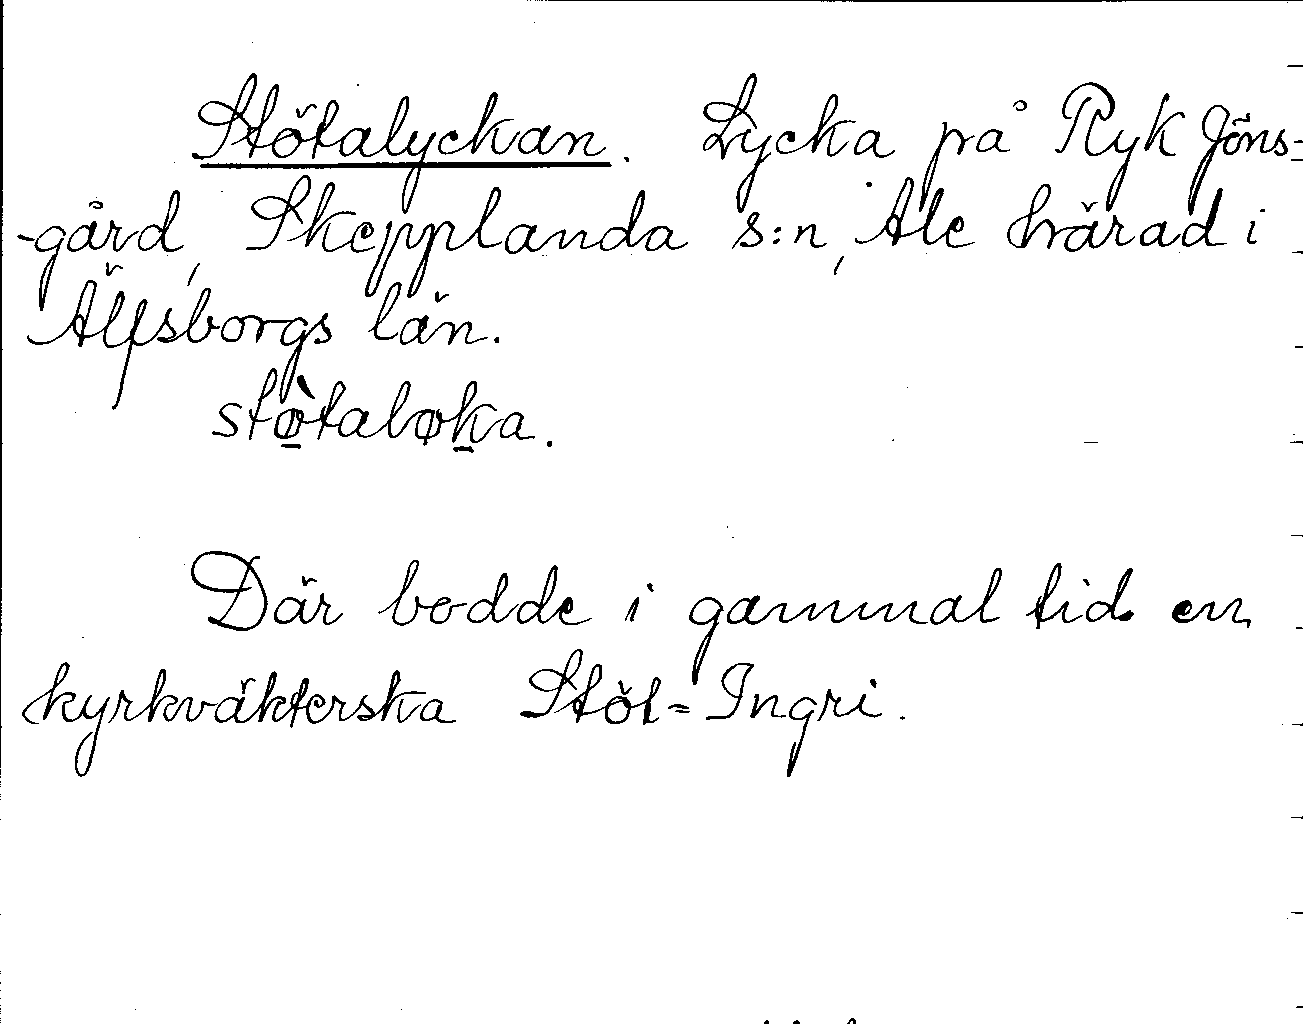 Stötalyckan. Lycka på Ryk Jöns-
-gård, Skepplanda s:n, Ale härad i
Älfsborgs län.
stø̠̀taløk̠a.
Där bodde i gammal tid en
kyrkväkterska Stöt-Ingri.